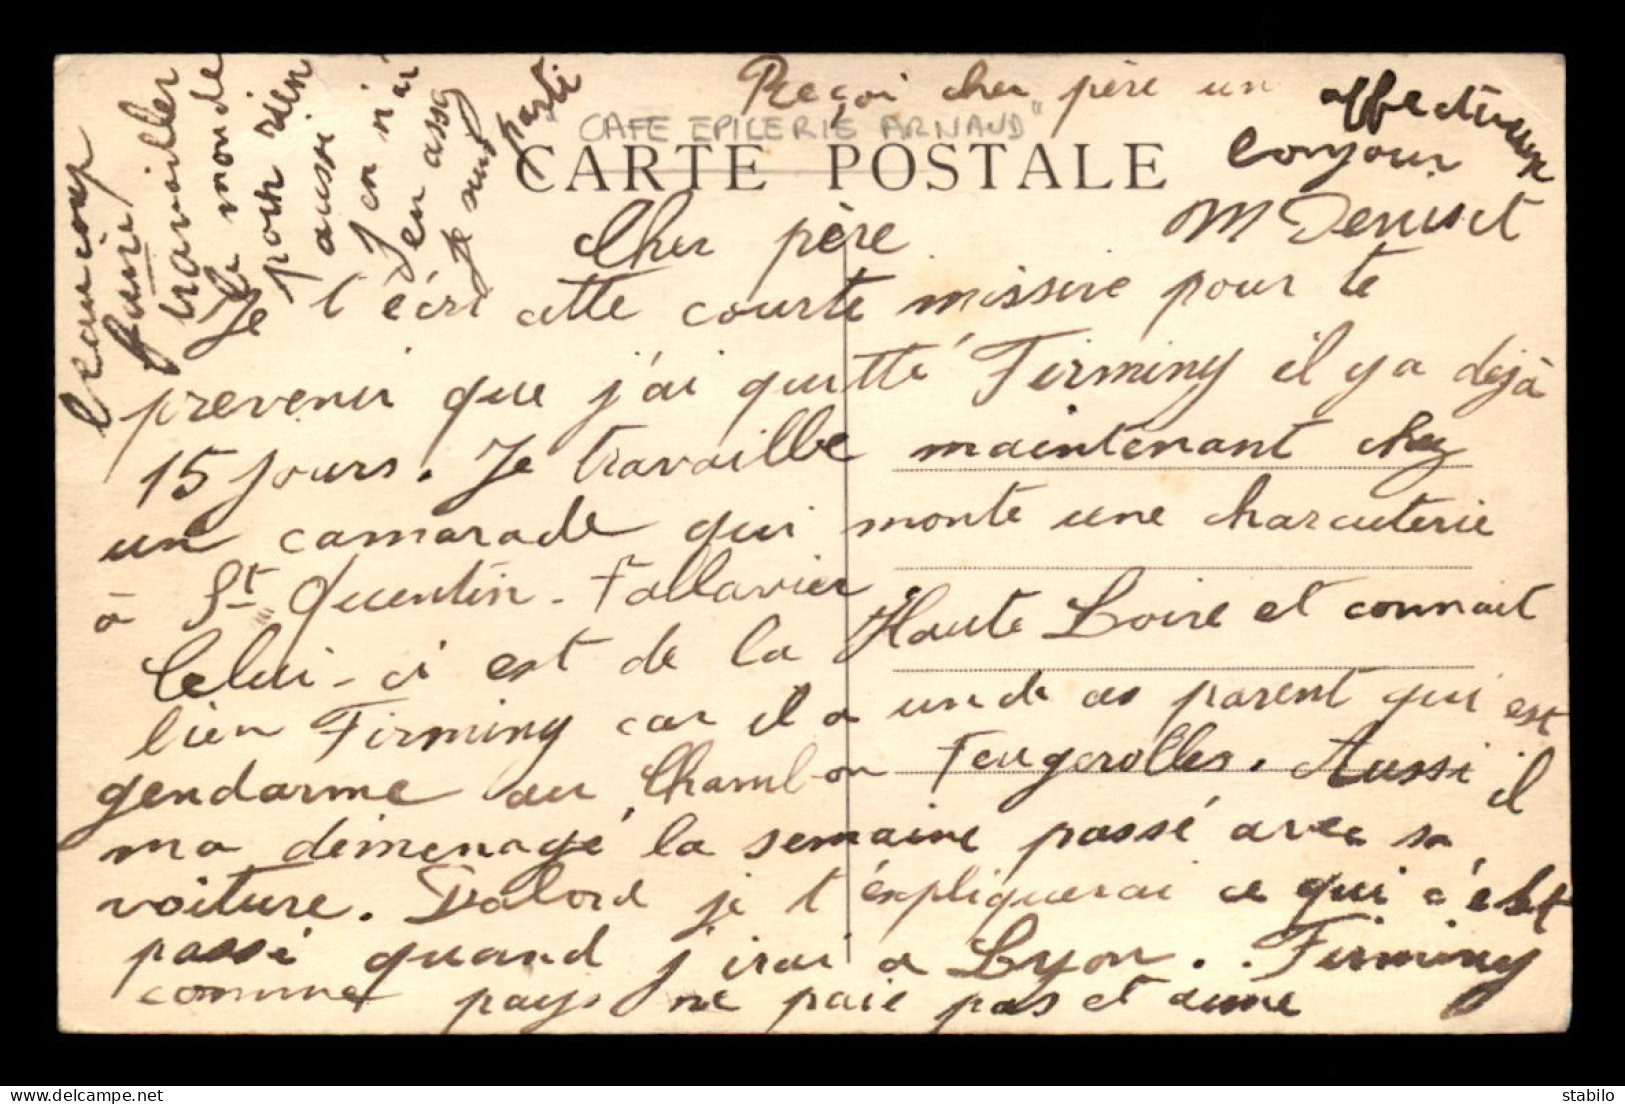 Cher père
Je t'écri cette courte missive pour te
prevenir que j'ai quitté Firminy il y a dejà
15 jours. Je travaille maintenant chez
un camarade qui monte une charcuterie
à St Quentin-Fallavier.
Celui-ci est de la Haute Loire et connait
bien Firminy car il a un de ces parent qui est
gendarme au Chambon Feugerolles. Aussi il
ma démenagé la semaine passé avec sa
voiture. Dabord je t'éxpliquerai ce qui c'est
passé quand j'irai a Lyon. Firminy
comme pays ne paie pas et aime
beaucoup
faire
travailler
le monde
pour rien
aussi
J'en n'ai
en assez
je suis
parti
Reçoi cher père un affectueux
bonjour
M
CAFE EPICERIE ARNAUD
CARTE POSTALE
delcampe.net
stabilo